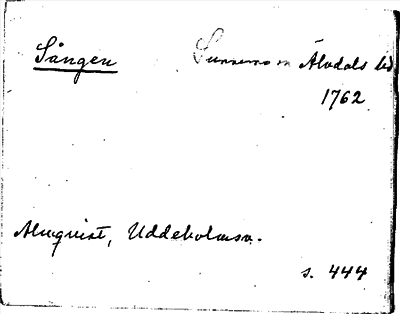 Sången Sunnemo sn Älvdals hd
1762
Almquist, Uddeholmsv.
s. 444